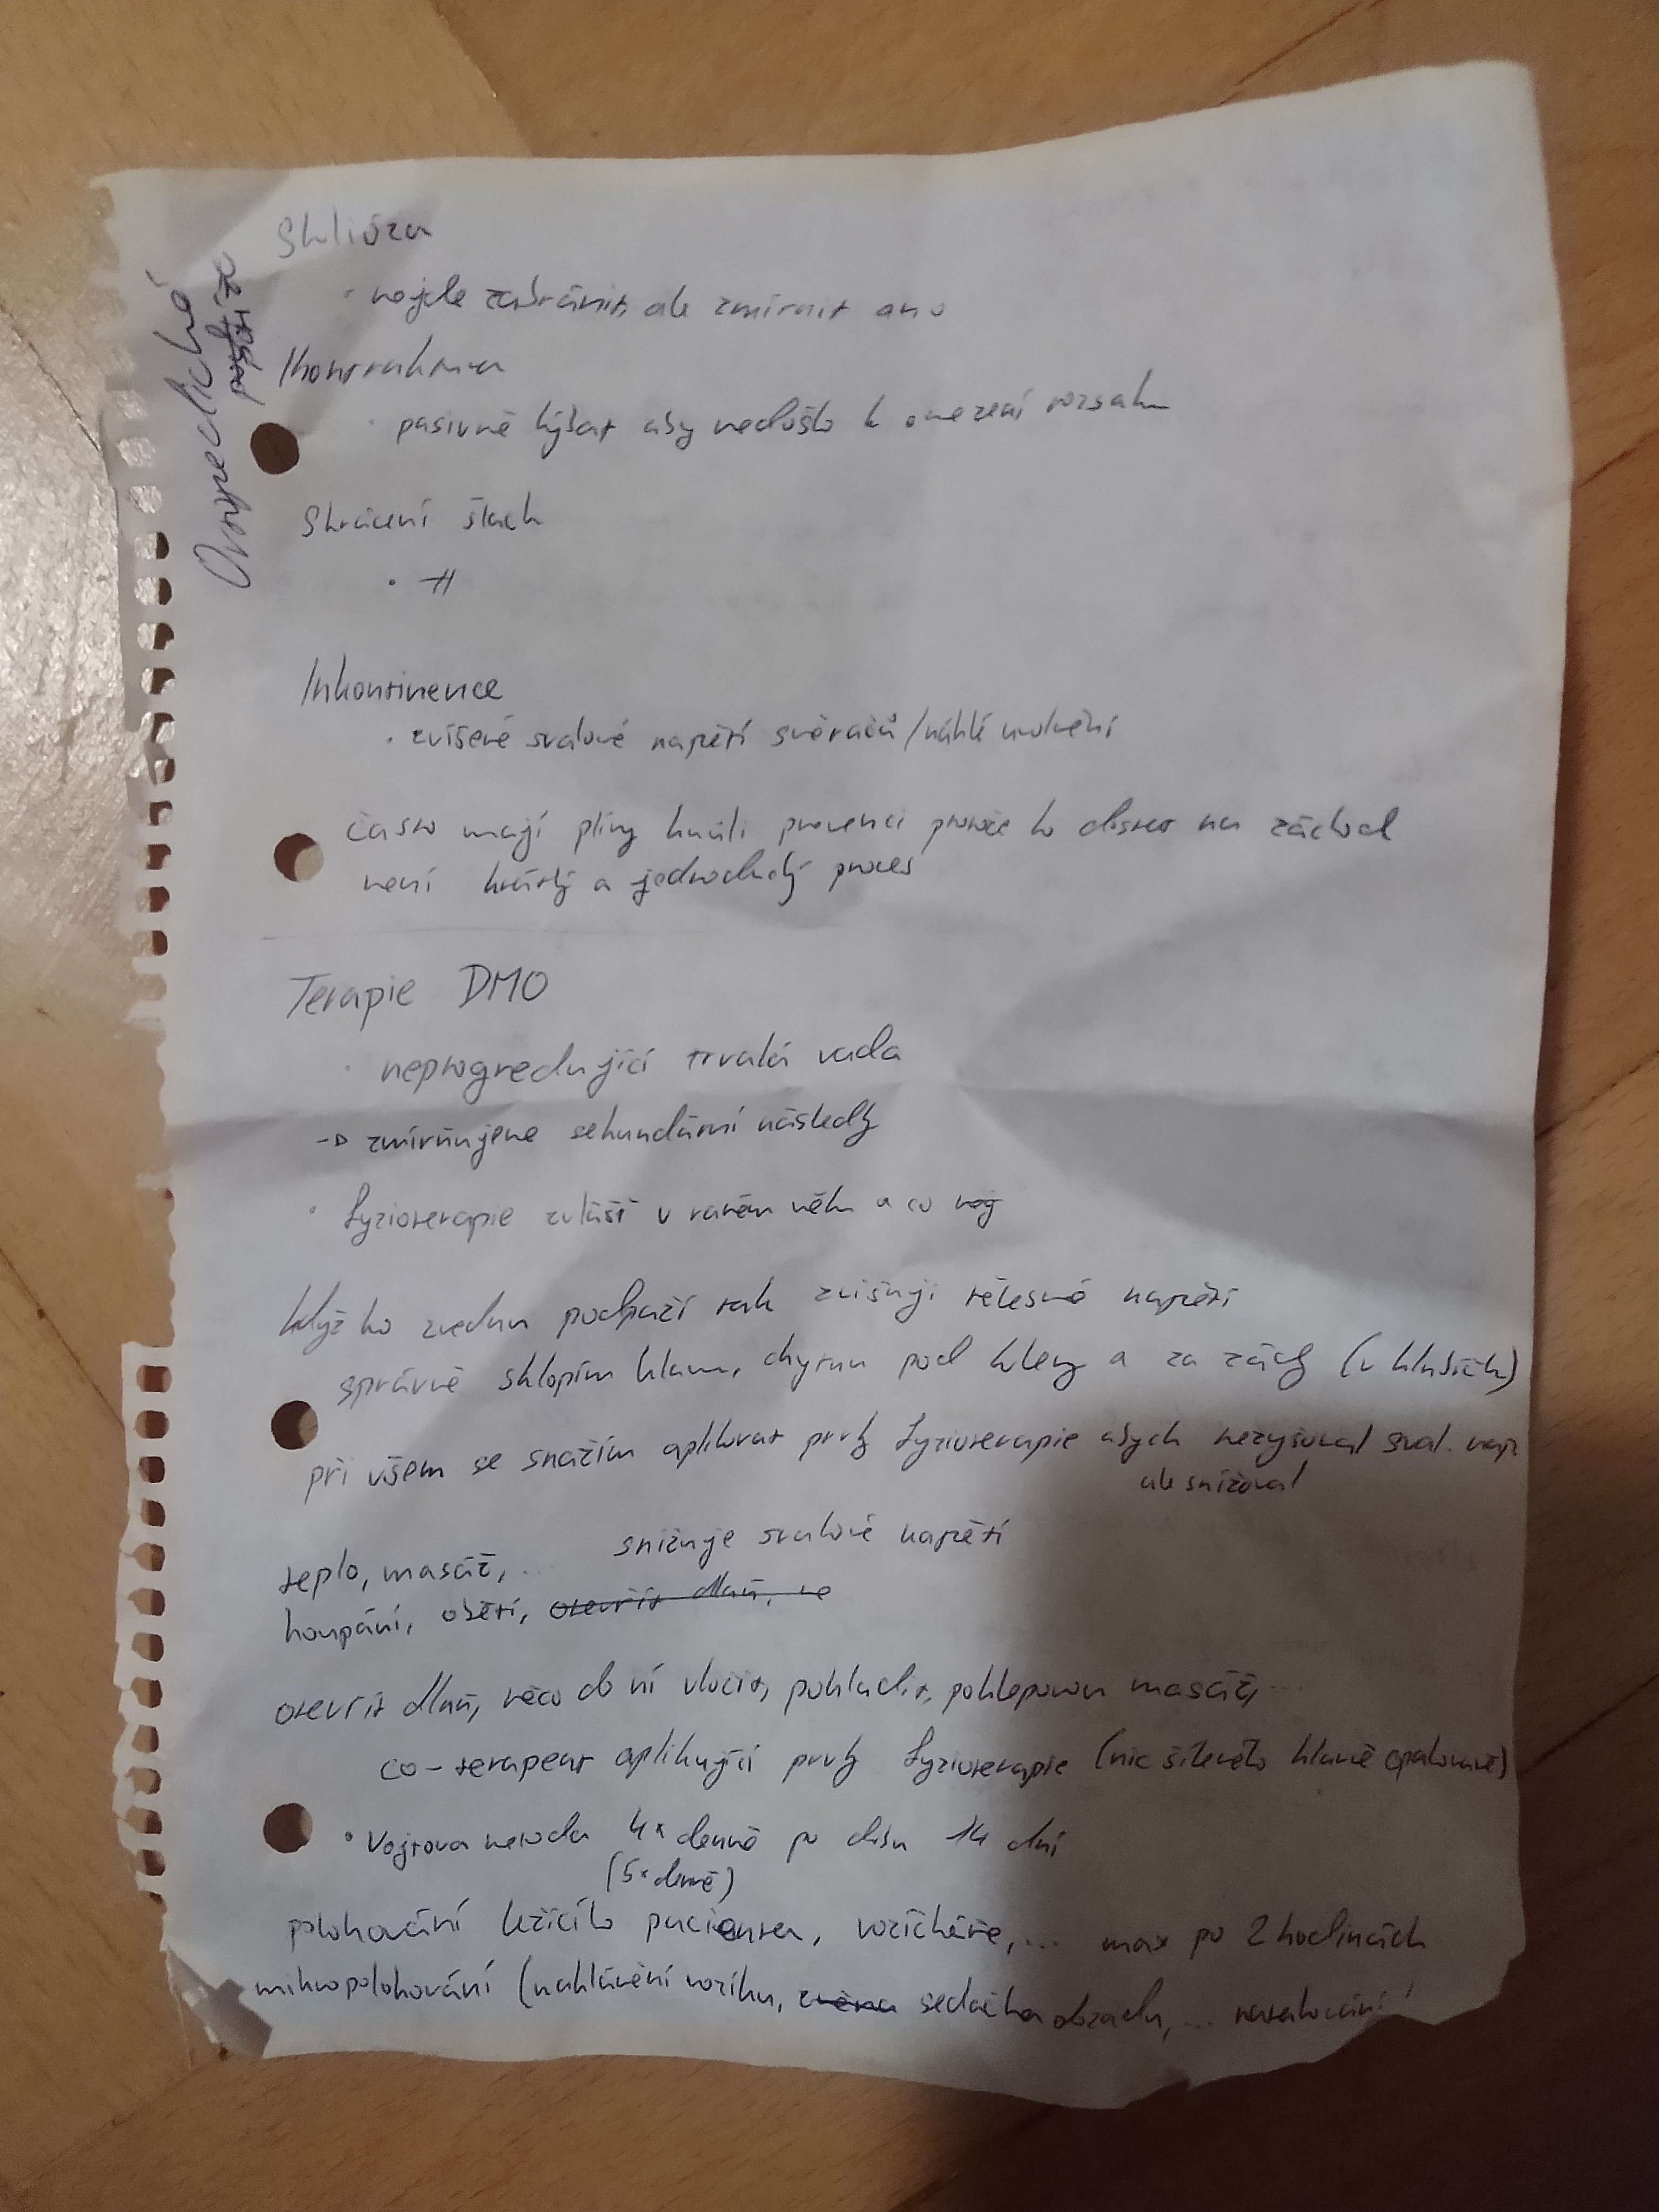 Ortopedické
potíže
Skolióza
· nejde zabránit, ale zmírnit ano
Kontraktura
· pasivně hýbat aby nedošlo k omezení rozsahu
Skrácení šlach
· -||
Inkontinence
· zvíšené svalové napětí svěračů / náhlé uvolnění
často mají plíny kvůli prevenci protože ho dostat na záchod
není krátký a jednoduchý proces
Terapie DMO
· neprogredující trvalá vada
-> zmírňujeme sekundární následky
· fyzioterapie zvlášť v raném věku a co nej
když ho zvednu podpaží tak zvišuji tělesné napětí
správně sklopím hlavu, chytnu pod koleny a za zády (v klubíčku)
při všem se snažím aplikovat prvky fyzioterapie abych nezvyšoval sval. nap.
ale snižoval
teplo, masáž, ... snižuje svalové napětí
houpání, objetí, otevřít dlaň, ve
otevřít dlaň, něco do ní vložit, pohladit, poklepovou masáží, ...
co-terapeut aplikující prvky fyzioterapie (nic šíleného hlavně opakovaně)
· Vojtova metoda 4x denně po dobu 14 dní
(5x denně)
polohování ležícího pacienta, vozíčkáře, ... max po 2 hodinách
mikropolohování (naklánění vozíku, sedačka dozadu, ...